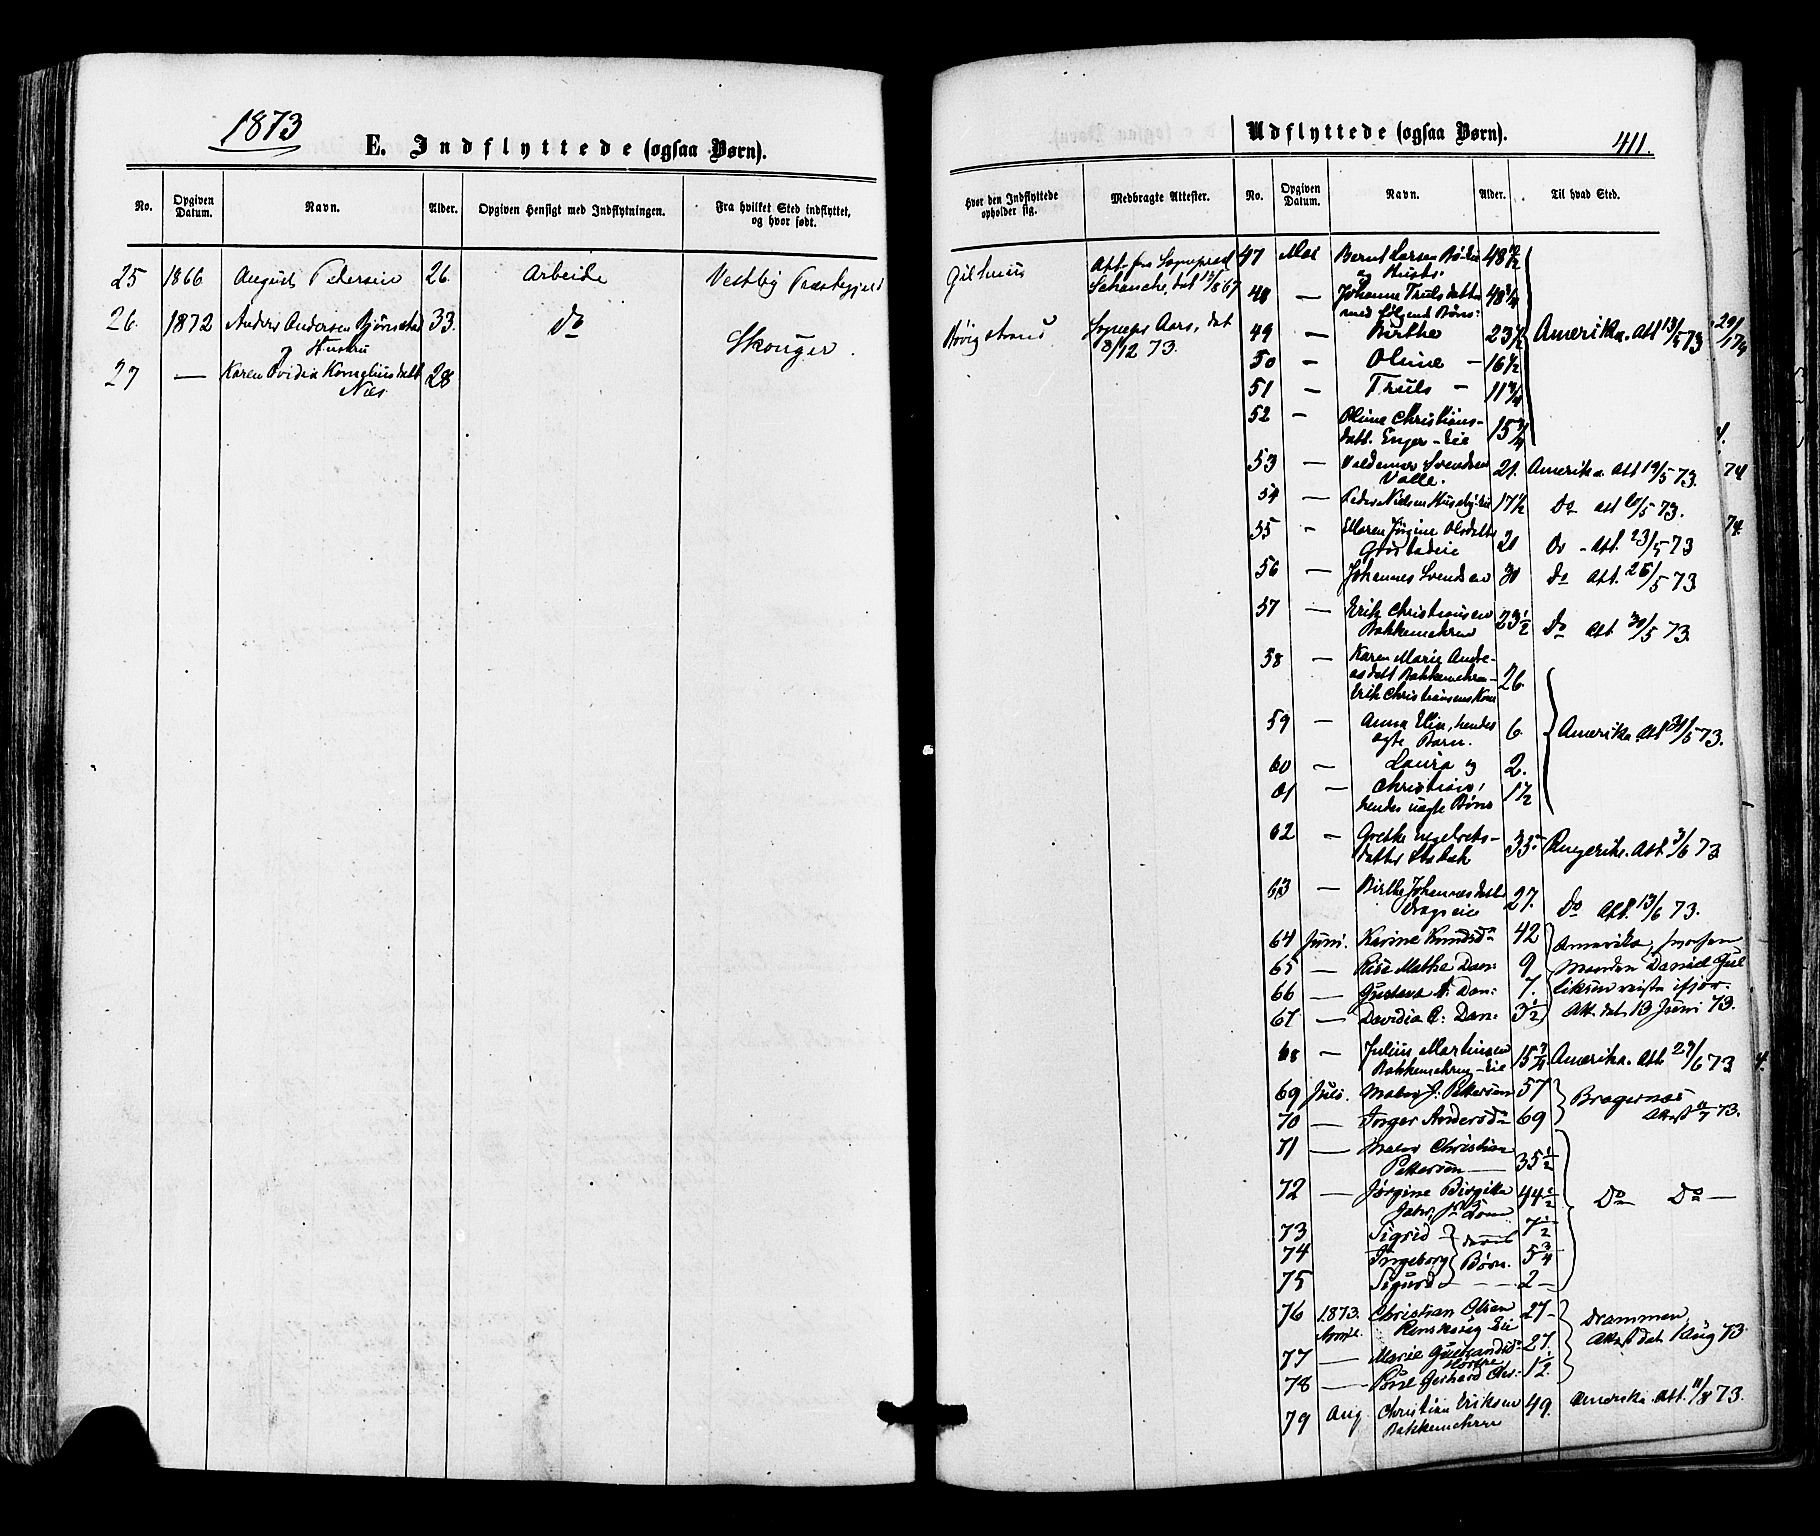 1873
E. Indflyttede (ogsaa Børn).
No.
Opgiven Datum.
Navn.
Alder.
Opgiven Hensigt med Indflytningen.
Fra hvilket Sted indflyttet, og hvor født.
25 1866 August Petersen 26. Arbeide Vestby Præstegjeld
26. 1872 Anders Andersen Bjørnstad 33. Do Skouger.
og Hustru
27 — Karen Ovidia Korneliusdatt 28
Næs
Udflyttede (ogsaa Børn).
411.
Hvor den Indflyttede opholder sig.
Medbragte Attester.
No.
Opgiven Datum.
Navn.
Alder.
Til hvad Sted.
Gilhuus Att. fra Sognepræst
Schanche, dat 12/8 67
Bøvigstrand Sognepr Aars, dat
3/12 73.
47 Mai Bernt Larsen 48 1/2
og Hustr.
48 — Johanne Trulsdatter 48 3/4
med følgende Børn:
49 — Birthe 23 1/2 Amerika. Att 13/5 73
50 — Oline — 16 1/2
51 — Truls — 11 3/4
52 — Oline Christians-
datt. Enger-Eie 15 3/4
53 — Valdemar Svendsen 21. Amerika. Att 19/5 73.
Valle.
54 — Peder Nielsen Husebyeie 17 1/2 Do Att 20/5 73.
55 — Maren Jørgine Olsdatter
20 Do - Att. 23/5 73
56 — Johannes Svendsen 30 Do Att. 26/5 73
57 — Erik Christiansen 23 1/2 Do Att 30/5 73.
Bakkemehren
58 — Karen Marie Andre-
asdatt Bakkemehren 26.
Erik Christiansens Kone
59 — Anna Elin, hendes 6. Amerika. Att 31/5 73.
ægte Barn.
60 — Laura og 2.
61 — Christian, 1 1/2
hendes uægte Børn
62 — Grethe Engebrets- 35 Ringerike. Att 3/6 73
datter
63 — Birthe Johannesdatt 27. Do Att. 13/6 73.
Dragseie
64 Juni. Karine Knudsda 42 Amerika, hvorhen
65 — Lise Mathea Dan: 9 Manden Daniel Gul
66 — Gustava A: Dan: 7. liksen reiste ifjor.
67 — Davidia C: Dan: 3 1/2 Att. dat 13 Juni 73.
68 — Julius Martinsen 15 3/4 Amerika. Att 29/6 73
Bakkemehren-Eie
69 Juli. Maler J: Pettersen 57 Bragernæs
70 — Inger Andersda 69 Attest 11/7 73.
71 — Maler Christian
Pettersen — 35 1/2
72 — Jørgine Birgitte 44 1/2 Do Do —
73 Sigrid — 7 1/2
74 Ingeborg Børn. 5 3/4
75 Sigurd — 2 —
76 1873. Christian Olsen 27- Drammen,
Eie Attest dat. 1 Aug 73.
77 — Marie 27.
78 — Gerhard Chr: 1 1/2.
79 Aug. Christian Eriksen 49. Amerika. Att. 11/8 73.
Bakkemehren